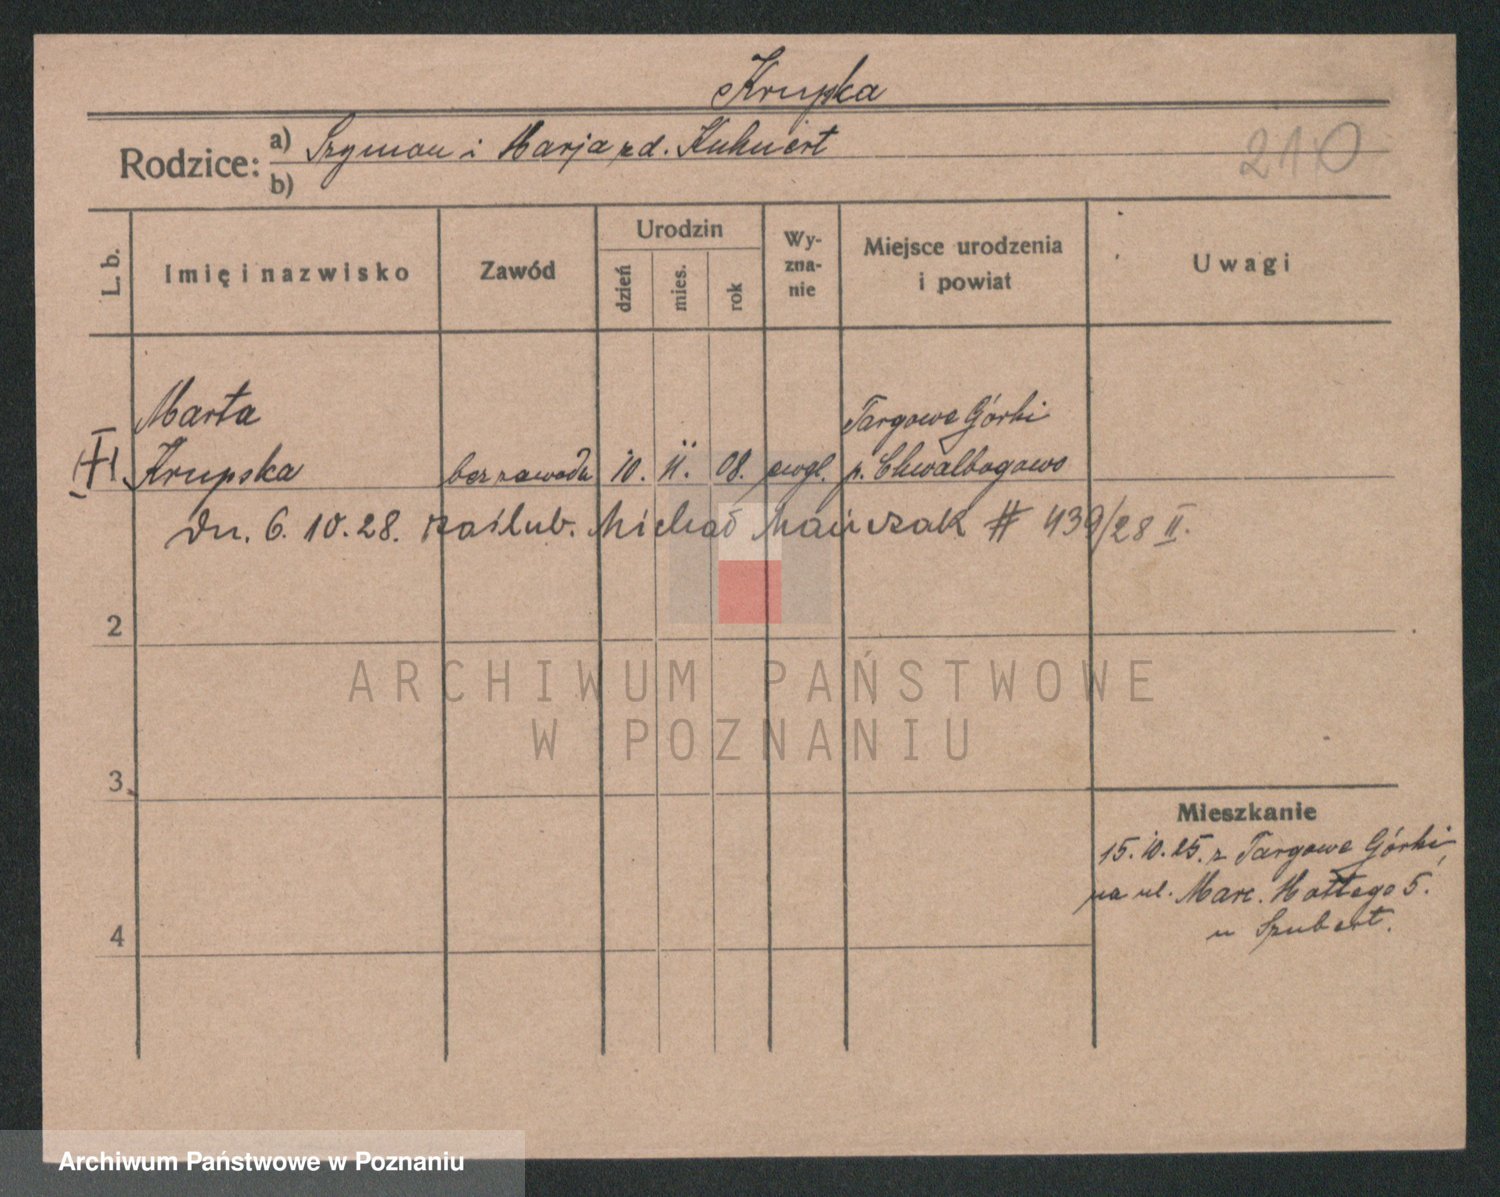 Krupska
Rodzice: a) Szymon i Marja zd. Kuhnert
b)
210
L. b.
Imię i nazwisko
Zawód
Urodzin
dzień
mies.
rok
Wy-
zna-
nie
Miejsce urodzenia
i powiat
Uwagi
Marta
Krupska
bez zawodu
10.
11.
08.
ewgl.
Targowa Górki
p. Chwalbogowo
dn. 6. 10. 28. zaślub. Michał Mańczak # 439/28 II.
2
3
4
Mieszkanie
15. 10. 25. z Targowa Górki,
na ul. Marc. Mottego 5.
u Szubert.
ARCHIWUM PAŃSTWOWE
W POZNANIU
Archiwum Państwowe w Poznaniu